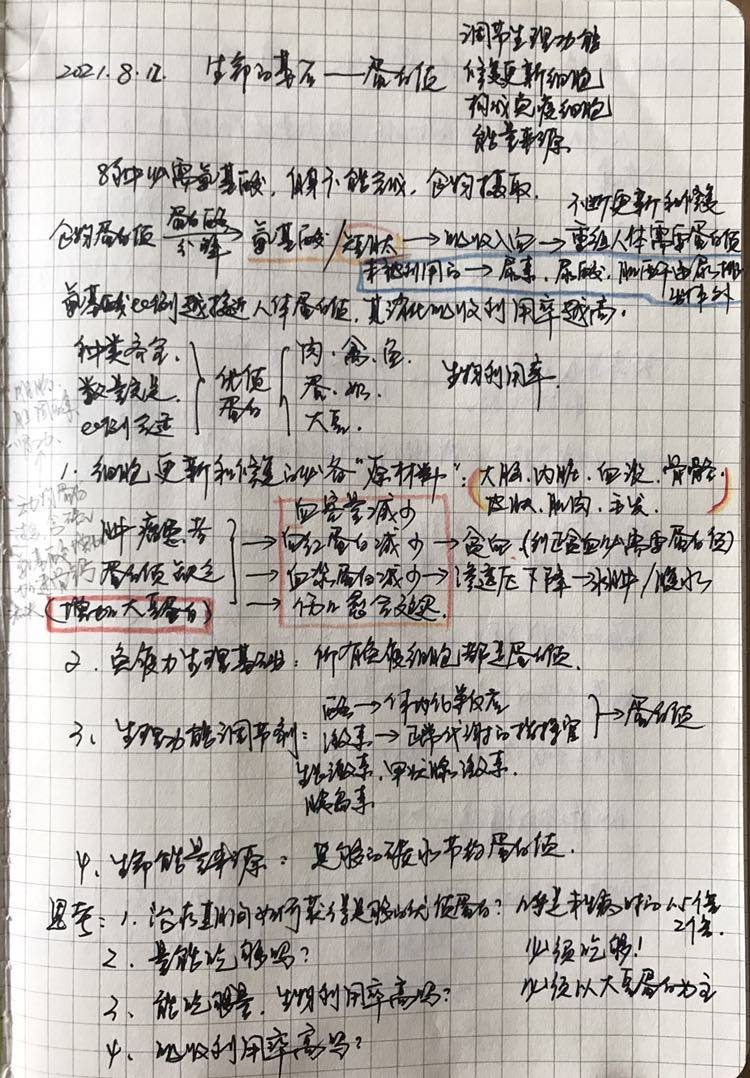 2021.8.12. 生命的基石——蛋白质
调节生理功能
修复更新细胞
构成免疫细胞
能量来源
8种必需氨基酸,自身不能完成,食物摄取.
不断更新和修复
食物蛋白质 蛋白酶 分解 → 氨基酸/短肽 → 吸收入血 → 重组人体需要蛋白质
未被利用的 → 尿素、尿酸、肌酐由尿排出体外
氨基酸比例越接近人体蛋白质,其消化吸收利用率越高.
种类齐全.
数量充足
比例合适
优质蛋白
肉、禽、鱼
蛋、奶
大豆
生物利用率
1. 细胞更新和修复的必备“原材料”:大脑、内脏、血液、骨骼、
皮肤、肌肉、毛发.
肿瘤患者
蛋白质缺乏
(增加大豆蛋白)
血容量减少
→ 血红蛋白减少 → 贫血.(纠正贫血必需要蛋白质)
→ 血浆蛋白减少 → 渗透压下降 → 水肿/腹水
→ 伤口愈合延迟.
2. 免疫力生理基础:所有免疫细胞都是蛋白质.
3、生理功能调节剂:
酶 → 体内化学反应
激素 → 正常代谢的指挥官
→ 蛋白质
生长激素、甲状腺激素.
胰岛素
4. 生命能量来源:足够的碳水节约蛋白质.
思考:1. 治疗期间如何获得足够的优质蛋白?
1.5倍
2倍.
2. 量能吃够吗?
必须吃够!
3. 能吃够量,生物利用率高吗?
必须以大豆蛋白为主
4. 吸收利用率高吗?